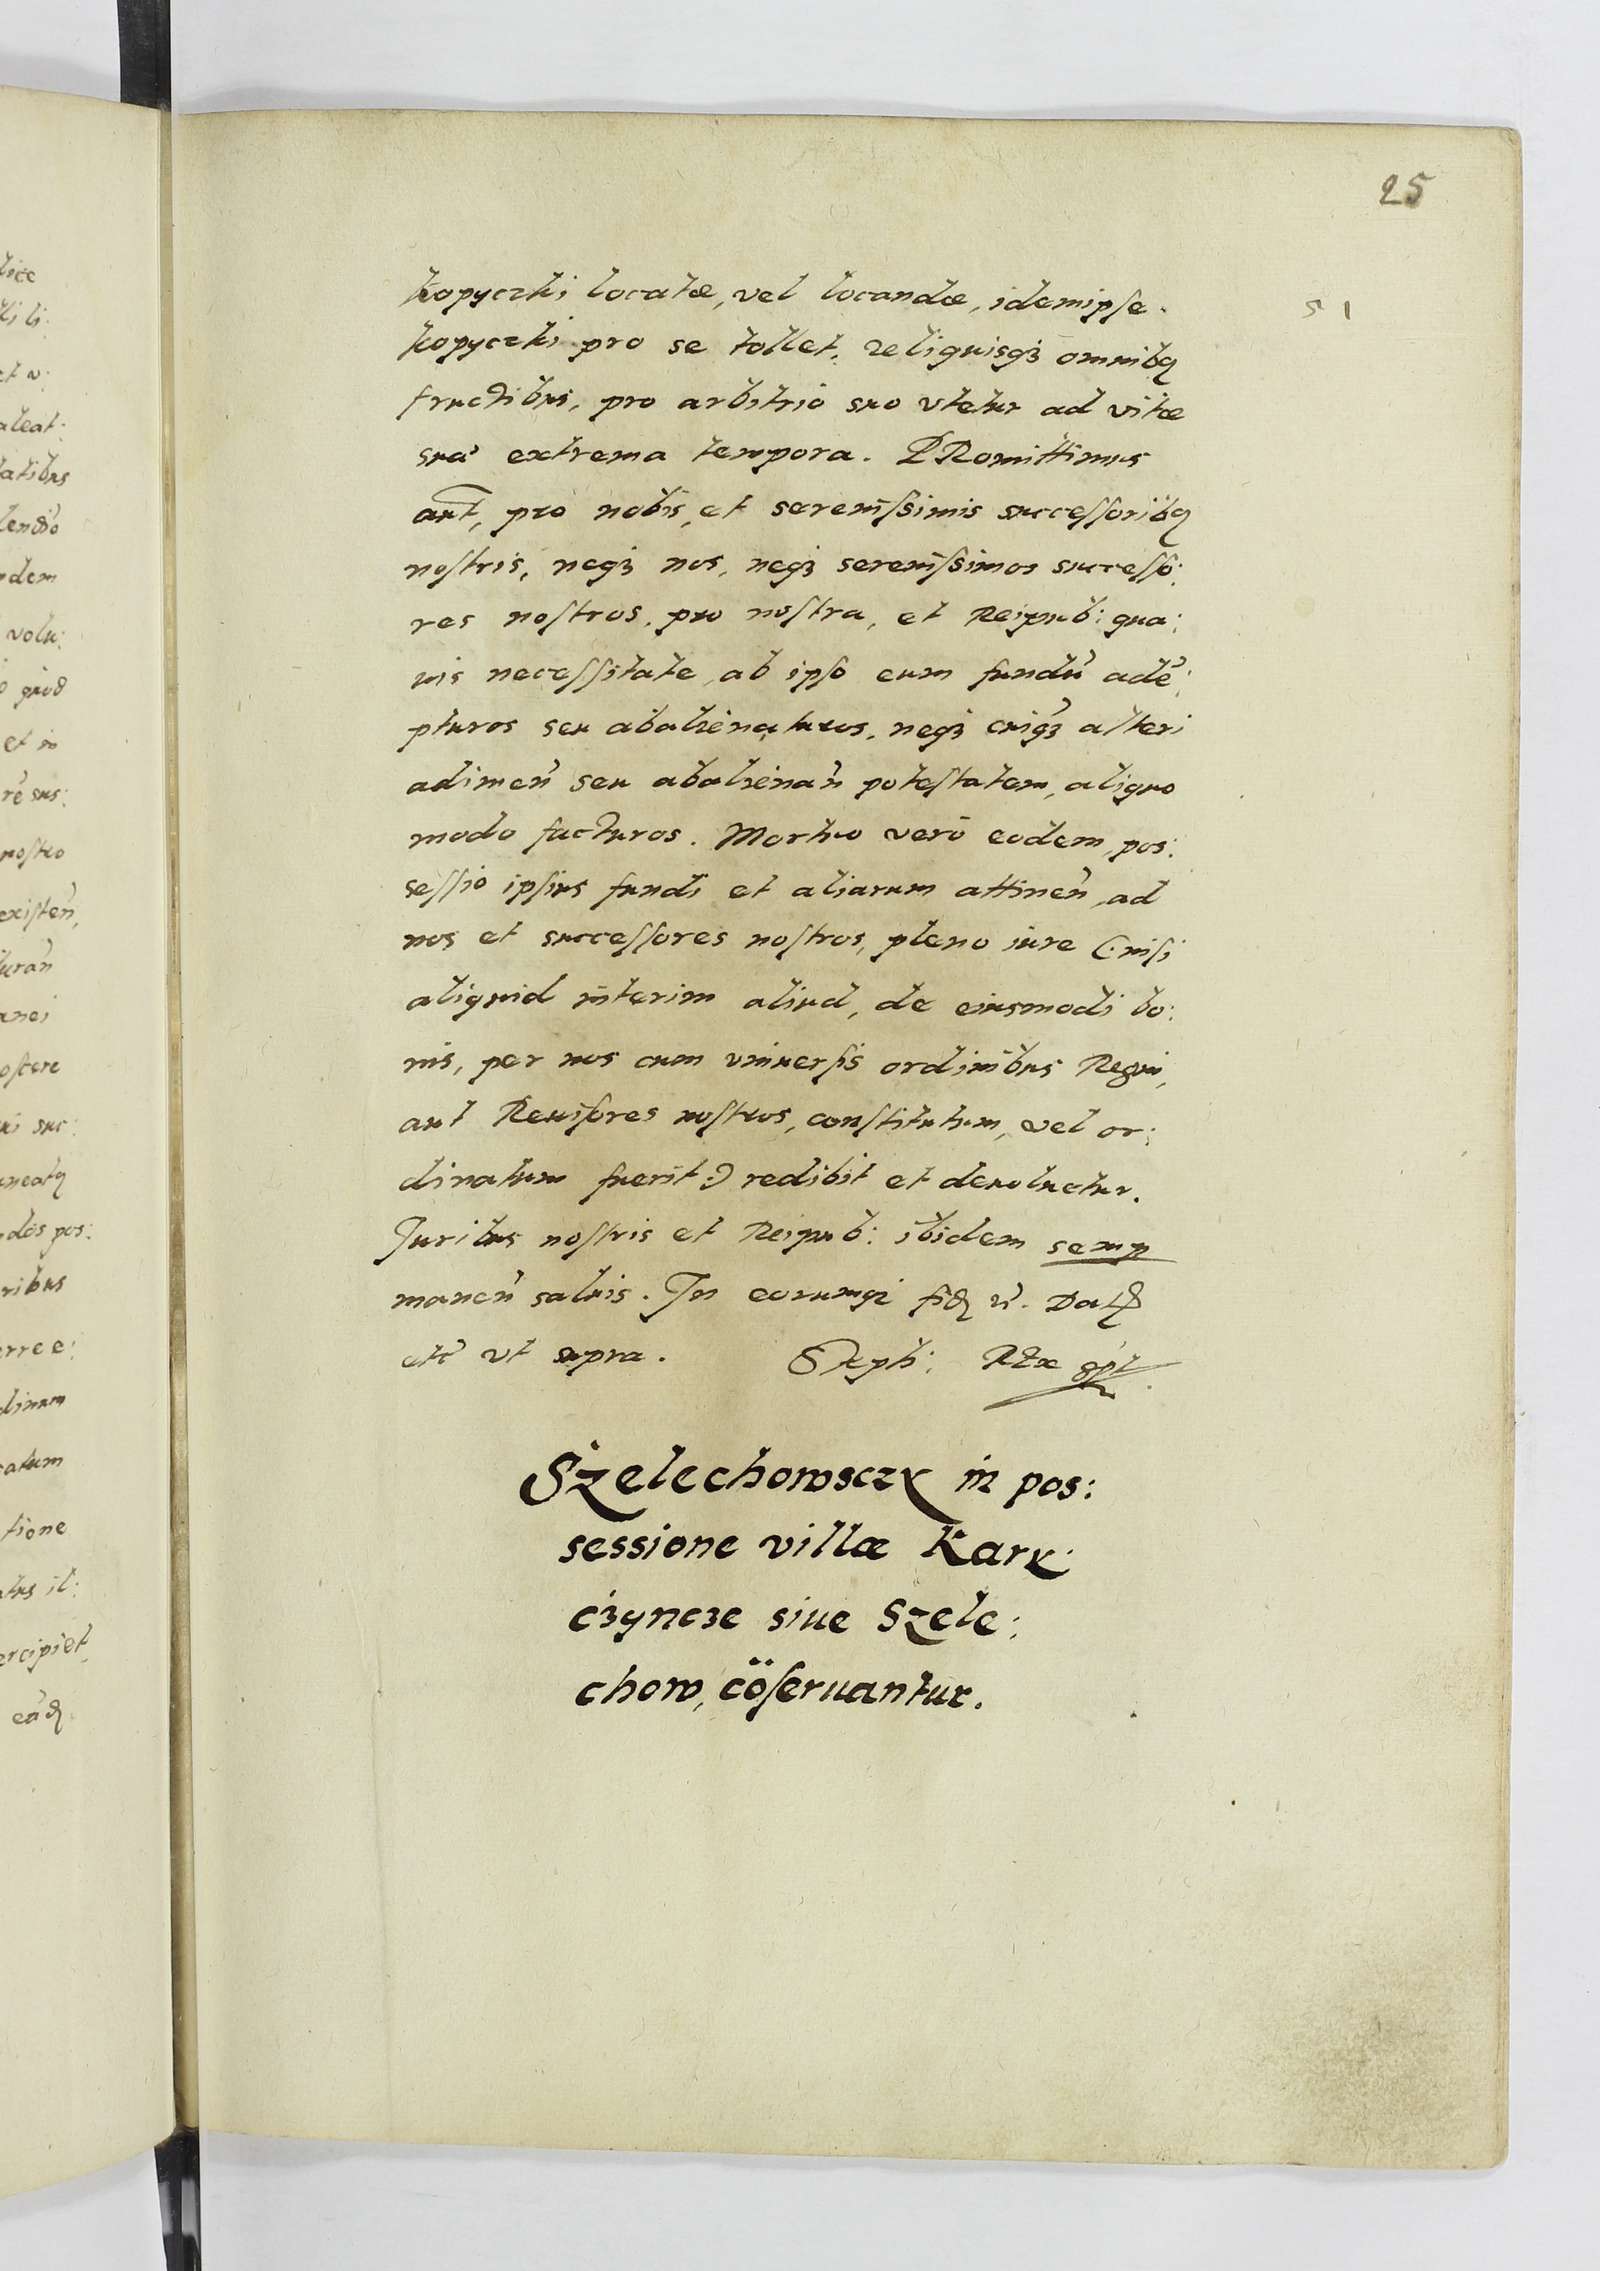 25
51
kopyczki locatæ, vel locandæ, idemipse.
kopyczki pro se tollet, reliquisqȝ omnibꝫ
fructibus, pro arbitrio suo vtetur ad vitæ
suæ extrema tempora. PRomittimus
aut̃, pro nobis, et serenissimis successoribꝫ
nostris, neqȝ nos, neqȝ serenissimos successo:
res nostros, pro nostra, et Reipub: qua:
uis necessitate, ab ipso eum fundũ adẽ:
pturos seu abalienaturos, neqȝ cuiqȝ alteri
adimeñ seu abalienañ potestatem, aliquo
modo facturos. Mortuo verò eodem, pos:
sessio ipsius fundi et aliarum attineñ, ad
nos et successores nostros, pleno iure (:nisi
aliquid interim aliud, de eiusmodi bo:
nis, per nos cum vniuersis ordinibus Regni,
aut Reuisores nostros, constitutum, vel or:
dinatum fuerit:) redibit et deuoluetur.
Juribus nostris et Reipub: ibidem semp
maneñ saluis. In eorumqȝ fiđ ñ. Dať
etc̃ vt supra. Steph: Rex
Szelechowsczy in pos:
sessione villæ Kary:
czyncze siue Szele:
chow, cõseruantur.
lice
et
aleat:
tatibus
ndem
volu:
quod
et in
nostro
existeñ,
ostere
ribus
dinum
catum
tione
ercipiet